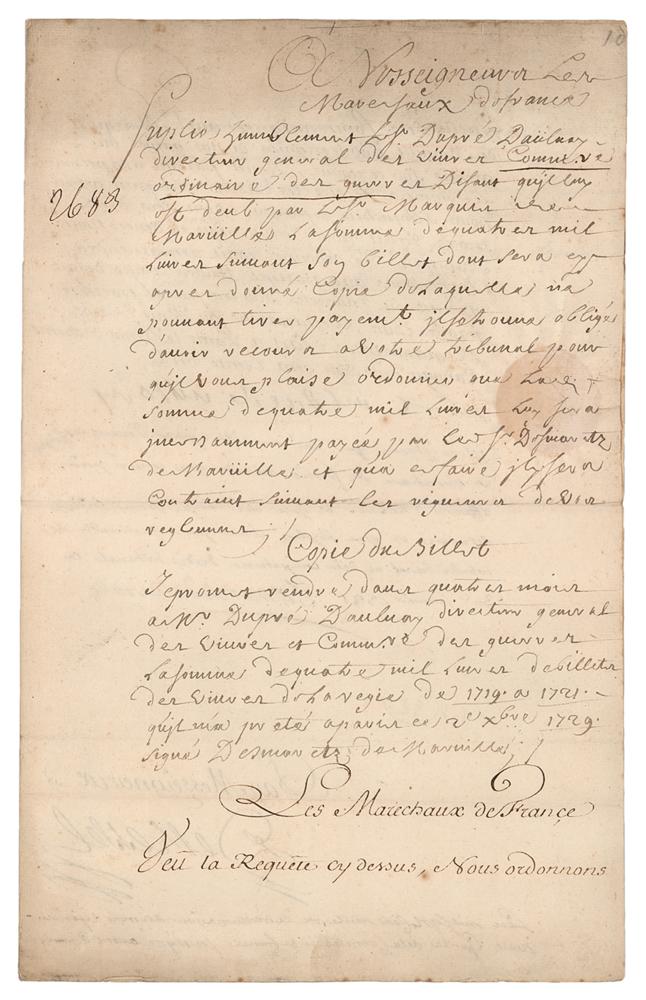 10
A Nosseigneurs Les
Marechaux de france
Suplie humblement Le Sr. Dupré Daulnay
directeur general des vivres Commre.
ordinaire des guerres Disant qu'il luy
2683
est deub par Le Sr. Marquis de
Maruille La somme de quatres mil
Livres suivant son billet dont sera cy
apres donné Copie de Laquelle ne
pouvant tirer payemt. il se trouve obligé
d'avoir recours a Votre tribunal pour
qu'il vous plaise ordonner que La
somme de quatre mil Livres Luy sera
incessamment payée par Le d. Sr. Desmaretz
de Maruille et qu'a ce faire il y sera
Contraint suivant Les rigueurs de vos
reglemens /
Copie du Billet
Je promet rendre dans quatres mois
a Mr. Dupré Daulnay directeur general
des vivres et Commre. des guerres
La somme de quatre mil Livres de billets
des vivres de La regie de 1719. a 1721.
qu'il m'a preté a paris ce 2e. xbre 1729.
signé Desmaretz de Maruille /
Les Marechaux de France
Veü la Requête cy dessus, Nous ordonnons